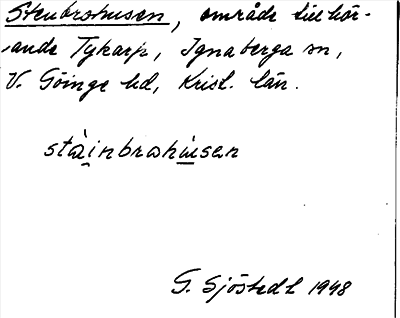 Stenbrohusen, område tillhör-
ande Tykarp, Ignaberga sn,
V. Göinge hd, Krist. län.
stàinbrohu̱sen
G. Sjöstedt 1948